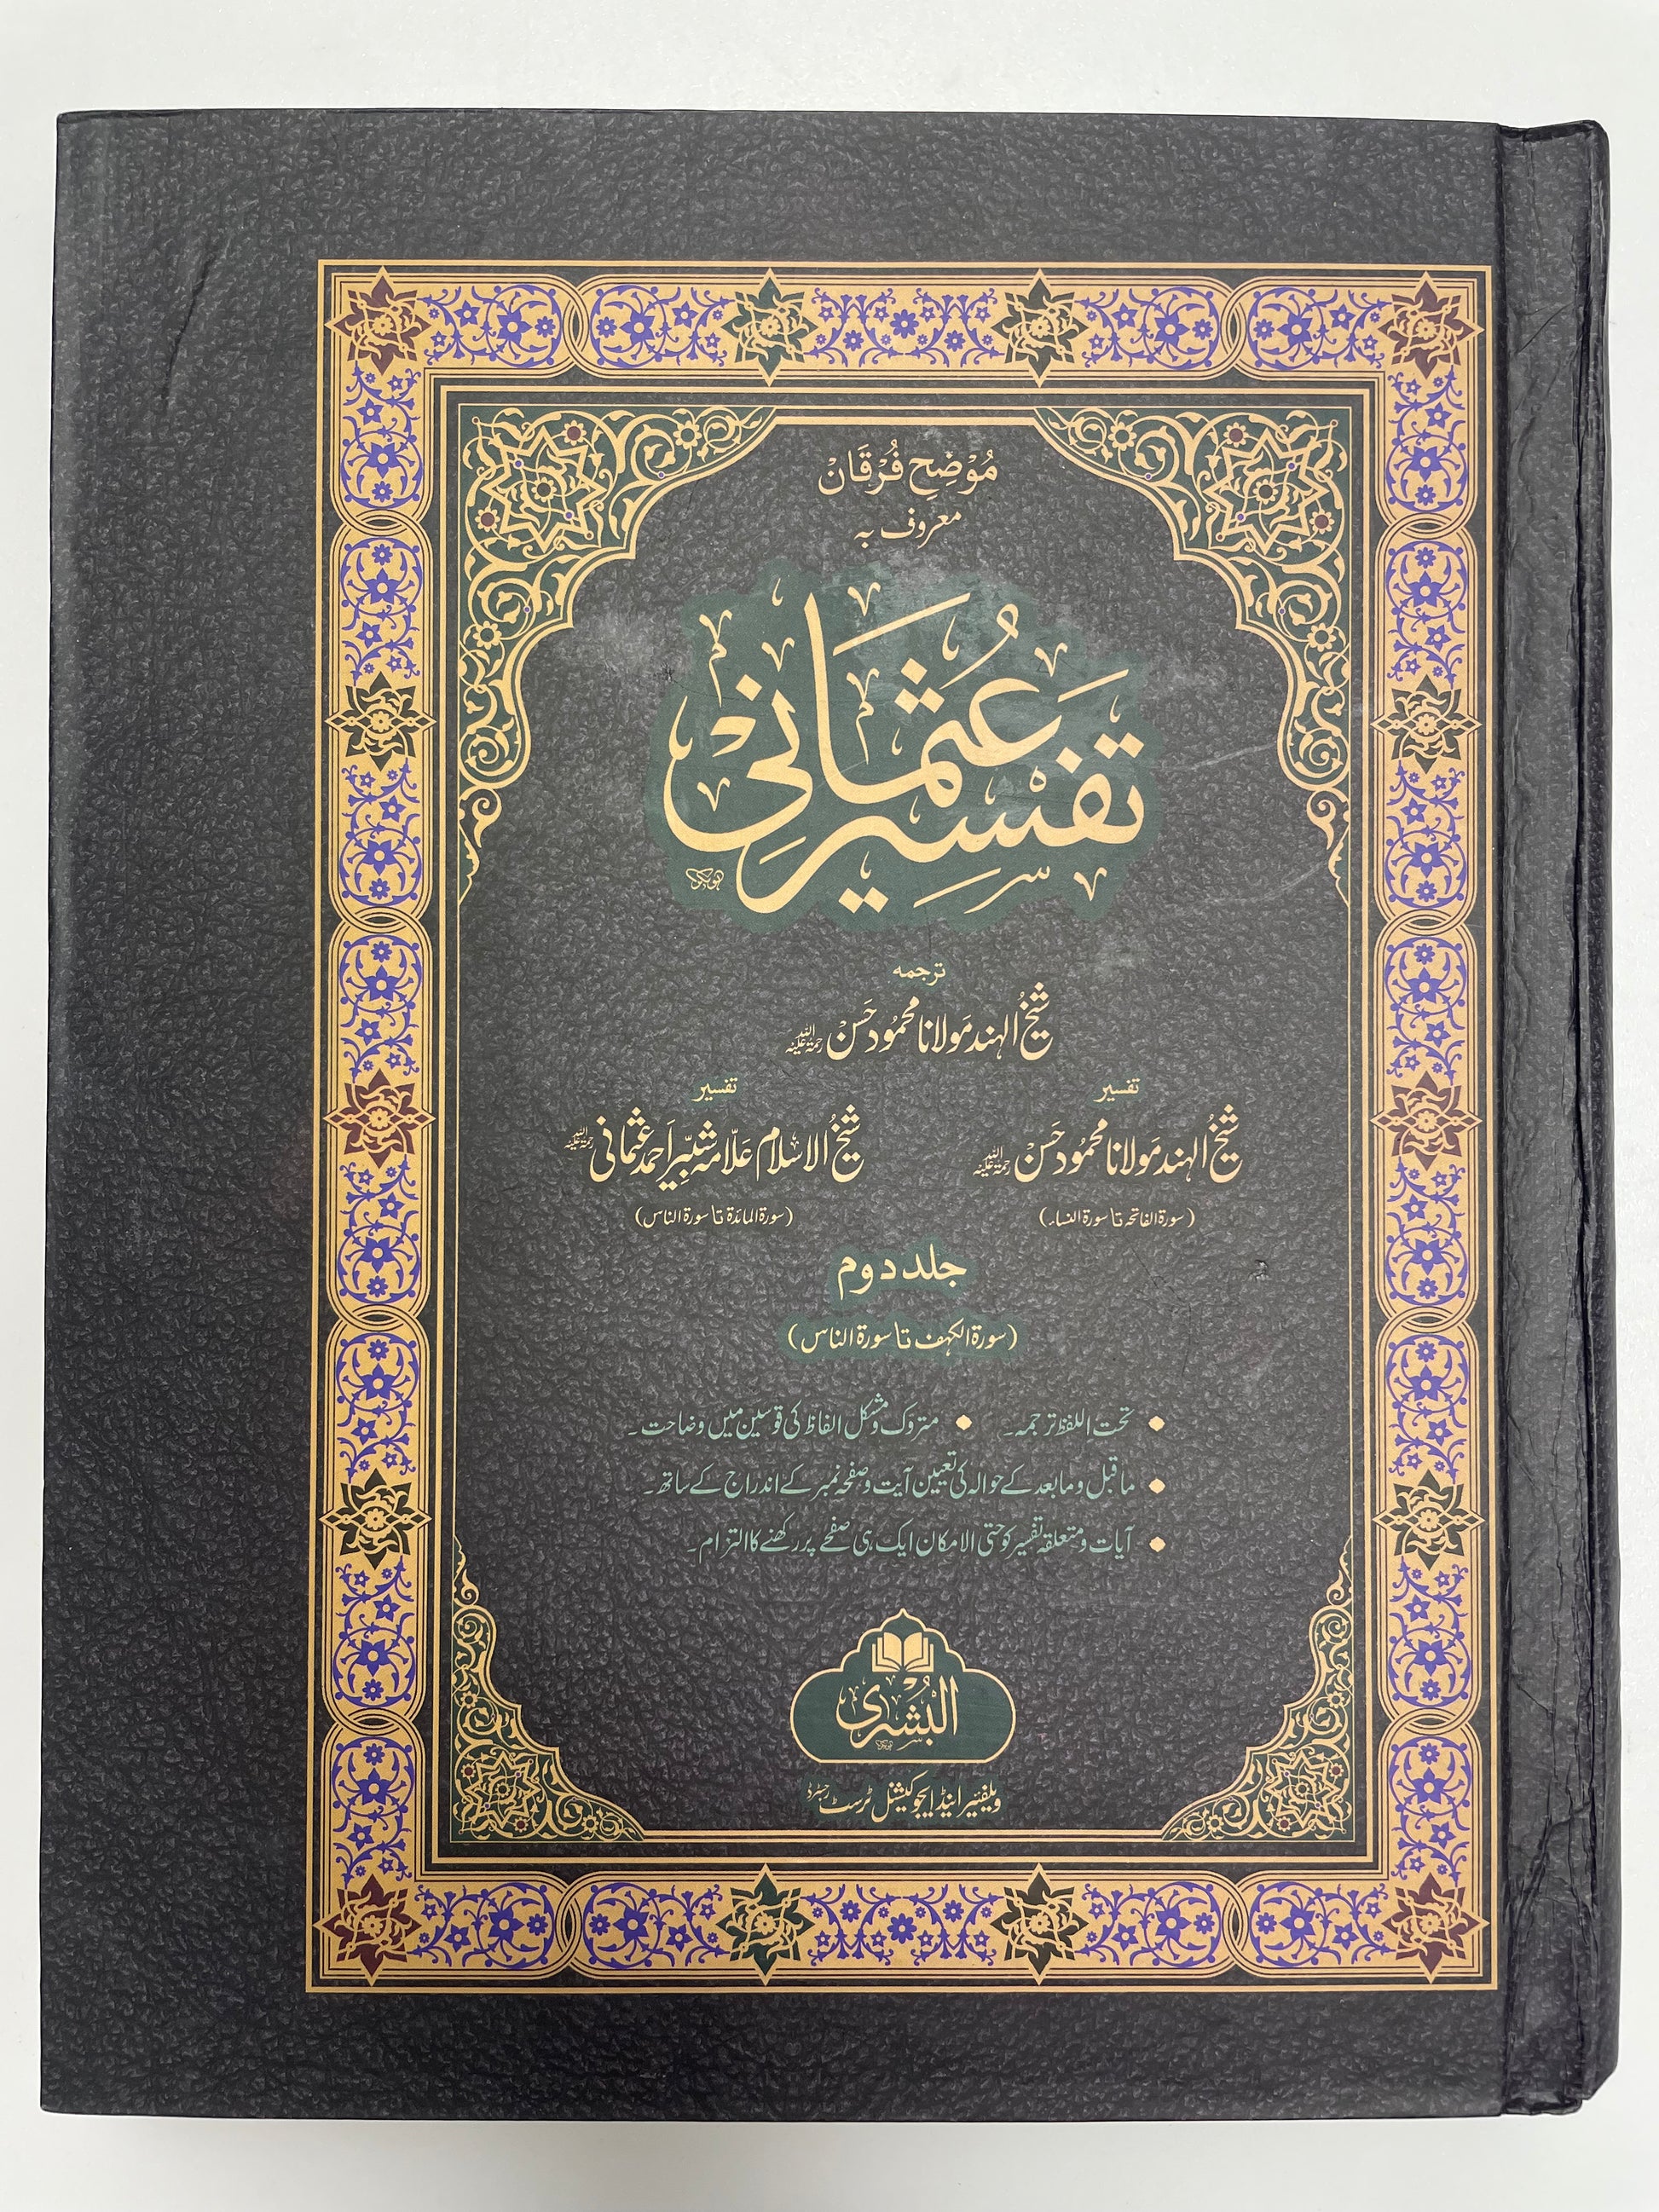 مُوْضِحِ فُرْقَان
معروف بہ
تَفْسِیْرِ عُثْمَانِیْ
ترجمہ
شیخ الہند مولانا محمود حسن رحمۃ اللہ علیہ
تفسیر
شیخ الہند مولانا محمود حسن رحمۃ اللہ علیہ
(سورۃ الفاتحہ تا سورۃ النساء)
تفسیر
شیخ الاسلام علّامہ شبّیر احمد عثمانی رحمۃ اللہ علیہ
(سورۃ المائدۃ تا سورۃ الناس)
جلد دوم
(سورۃ الکہف تا سورۃ الناس)
• تحت اللفظ ترجمہ۔ • متروک و مشکل الفاظ کی قوسین میں وضاحت۔
• ماقبل و مابعد کے حوالہ کی تعیین آیت و صفحہ نمبر کے اندراج کے ساتھ۔
• آیات و متعلقہ تفسیر کو حتی الامکان ایک ہی صفحے پر رکھنے کا التزام۔
البُشریٰ
ویلفیئر اینڈ ایجوکیشنل ٹرسٹ رجسٹرڈ